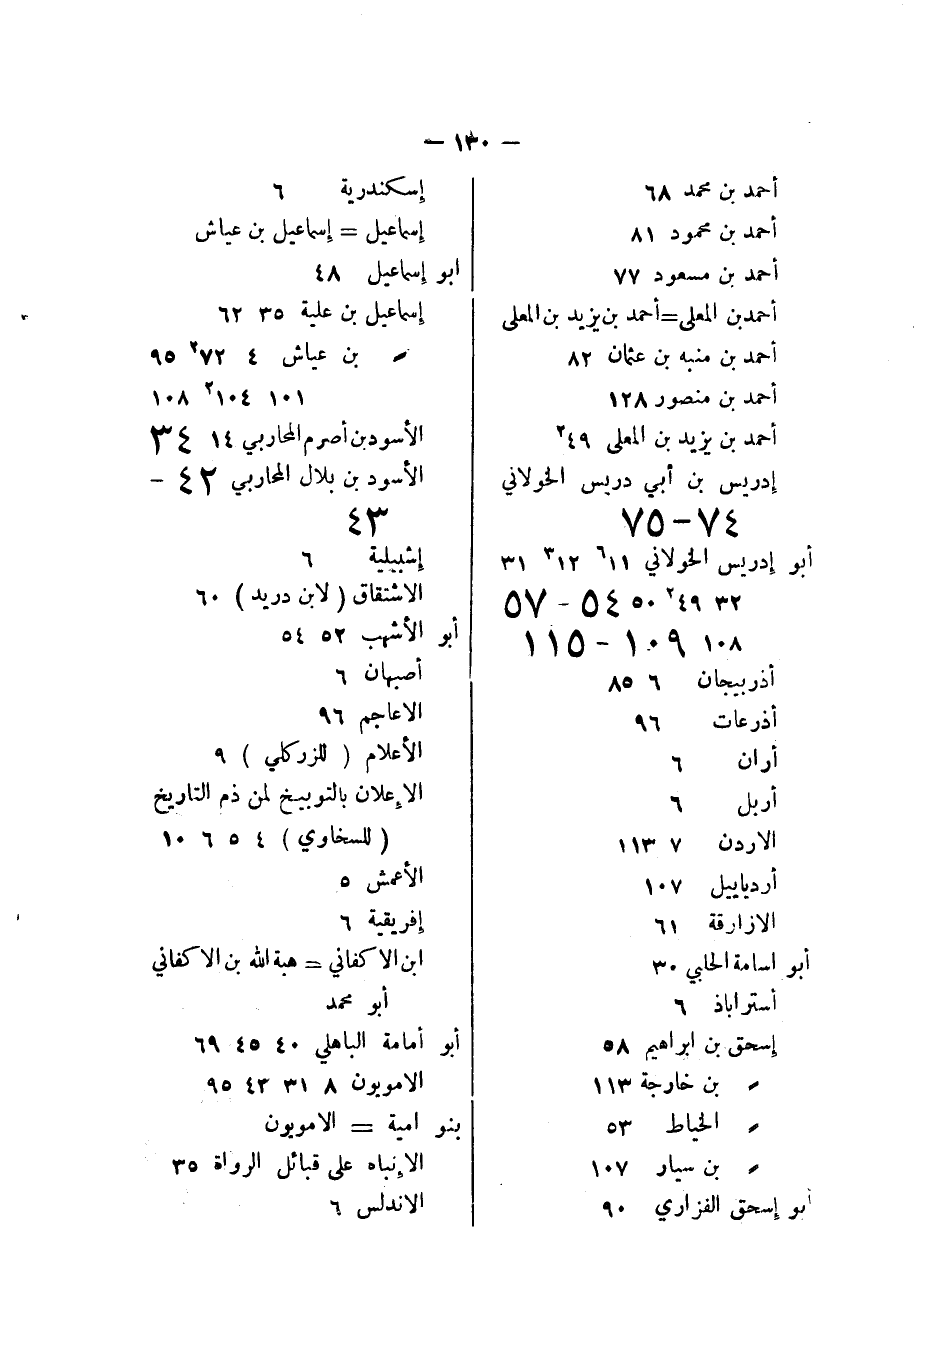 — ١٣٠ —
أحمد بن محمد ٦٨
أحمد بن محمود ٨١
أحمد بن مسعود ٧٧
أحمد بن المعلى = أحمد بن يزيد بن المعلى
أحمد بن منبه بن عثمان ٨٢
أحمد بن منصور ١٢٨
أحمد بن يزيد بن المعلى ٤٩٢
إدريس بن أبي دريس الخولاني
٧٤ – ٧٥
أبو إدريس الخولاني ١١٦ ١٢٣ ٣١
٣٢ ٤٩٢ ٥٠ ٥٤ – ٥٧
١٠٨ ١٠٩ – ١١٥
أذربيجان ٦ ٨٥
أذرعات ٩٦
أران ٦
أربل ٦
الاردن ٧ ١١٣
أردياييل ١٠٧
الازارقة ٦١
أبو اسامة الحلبي ٣٠
أستراباذ ٦
إسحق بن ابراهيم ٥٨
〃 بن خارجة ١١٣
〃 الخياط ٥٣
〃 بن سيار ١٠٧
أبو إسحق الفزاري ٩٠
إسكندرية ٦
إسماعيل = إسماعيل بن عياش
ابو إسماعيل ٤٨
إسماعيل بن علية ٣٥ ٦٢
〃 بن عياش ٤ ٧٢٢ ٩٥
١٠١ ١٠٤٢ ١٠٨
الأسود بن أصرم المحاربي ١٤ ٣٤
الأسود بن بلال المحاربي ٤٢ –
٤٣
إشبيلية ٦
الاشتقاق ( لابن دريد ) ٦٠
أبو الأشهب ٥٢ ٥٤
أصبهان ٦
الاعاجم ٩٦
الأعلام ( للزركلي ) ٩
الإعلان بالتوبيخ لمن ذم التاريخ
( للسخاوي ) ٤ ٥ ٦ ١٠
الأعمش ٥
إفريقية ٦
ابن الاكفاني = هبة الله بن الاكفاني
أبو محمد
أبو أمامة الباهلي ٤٠ ٤٥ ٦٩
الامويون ٨ ٣١ ٤٣ ٩٥
بنو امية = الامويون
الإنباه على قبائل الرواة ٣٥
الاندلس ٦